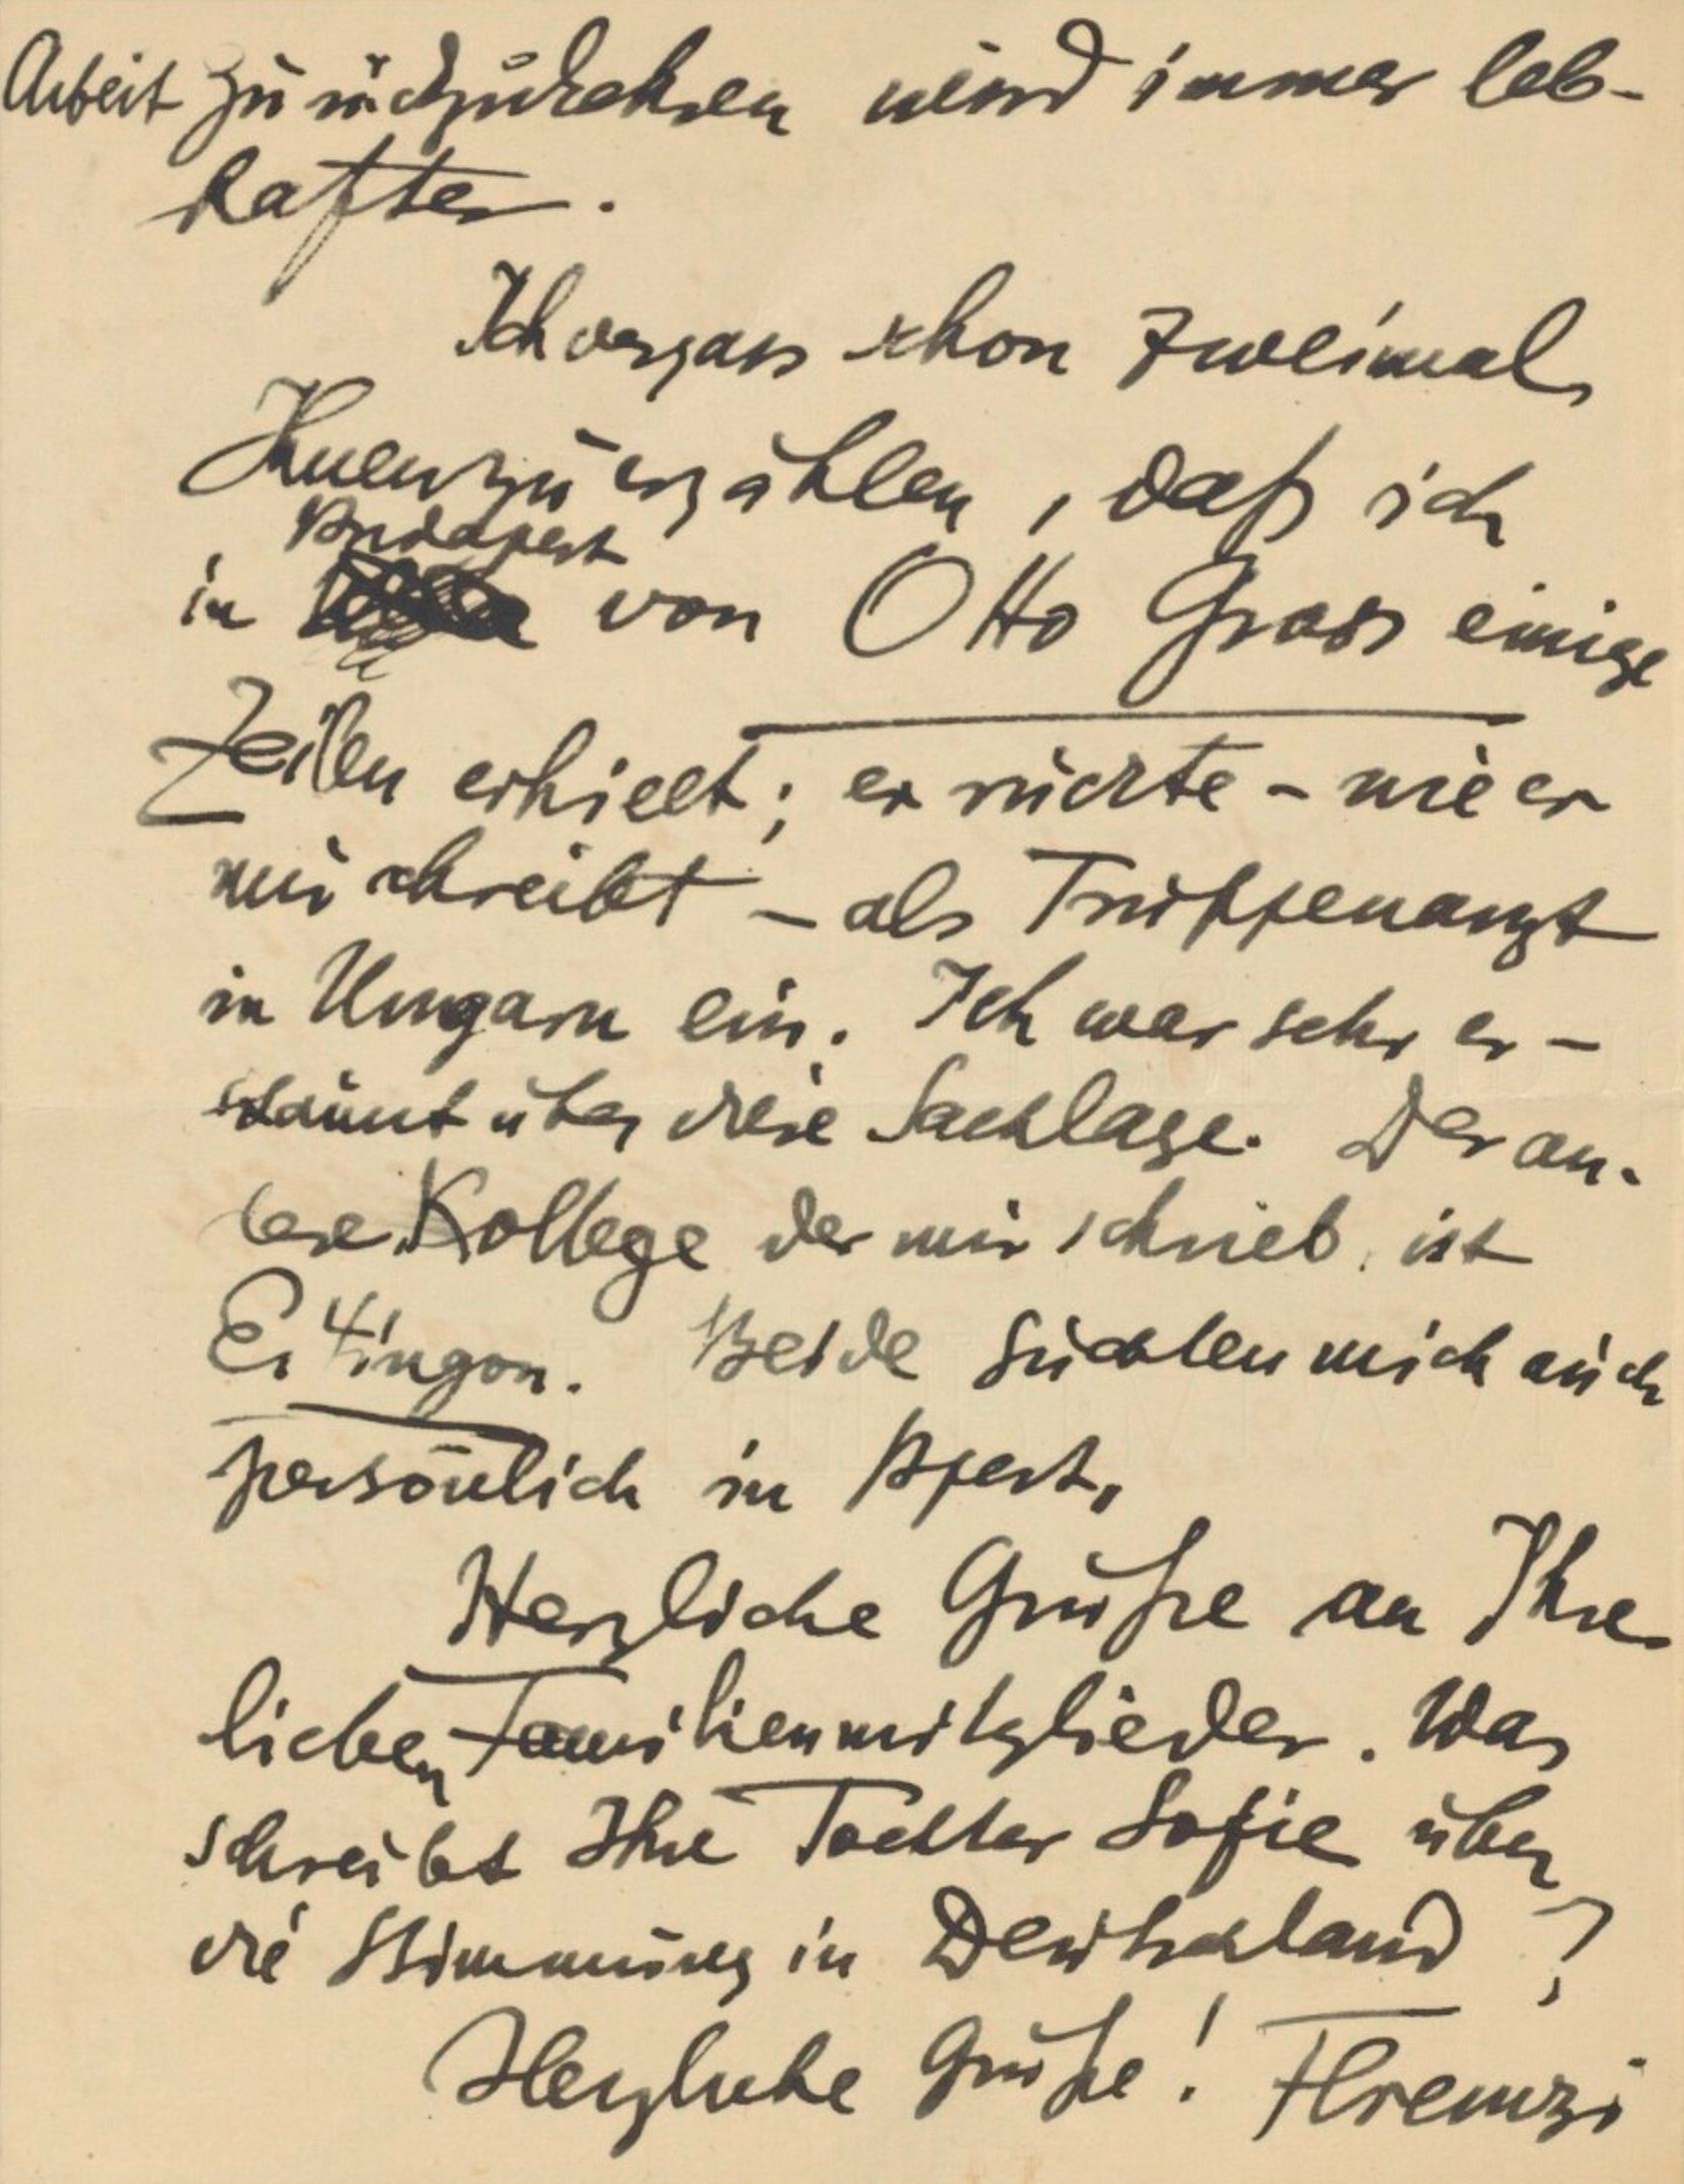 Arbeit zurückzukehren wird immer leb-
hafter.
Ich vergass schon zweimal
Ihnen zu erzählen, daß ich
Budapest
in von Otto Gross einige
Zeilen erhielt; er rückte – wie er
mir schreibt – als Truppenarzt
in Ungarn ein. Ich war sehr er-
staunt über diese Sachlage. Der an-
dere Kollege der mir schrieb, ist
Eitingon. Beide suchten mich auch
persönlich in Bpest.
Herzliche Grüße an Ihre
lieben Familienmitglieder. Was
schreibt Ihre Tochter Sofie über
die Stimmung in Deutschland?
Herzliche Grüße! Ferenczi